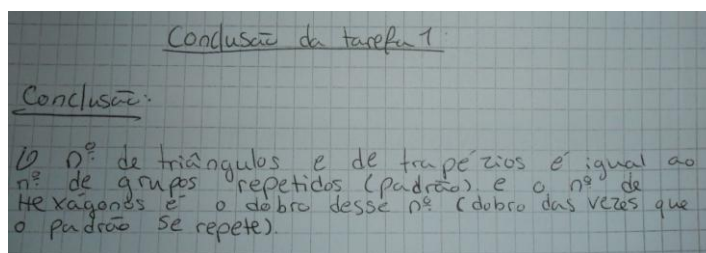 Conclusão da tarefa 1
Conclusão:
O nº de triângulos e de trapézios é igual ao
nº de grupos repetidos (padrão) e o nº de
Hexágonos é o dobro desse nº (dobro das vezes que
o padrão se repete).